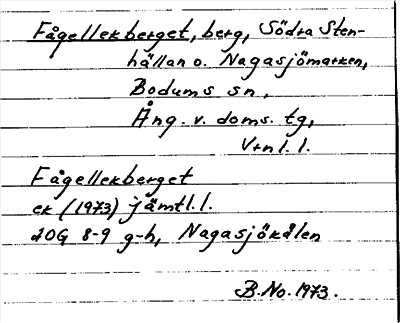 Fågellekberget, berg, Södra Sten-
hällan o. Nagasjömarken,
Bodums sn,
Ång. v. doms. tg,
Vrnl. l.
Fågellekberget
ek (1973) jämtl. l.
20G 8-9 g-h, Nagasjökälen
B.No. 1973.